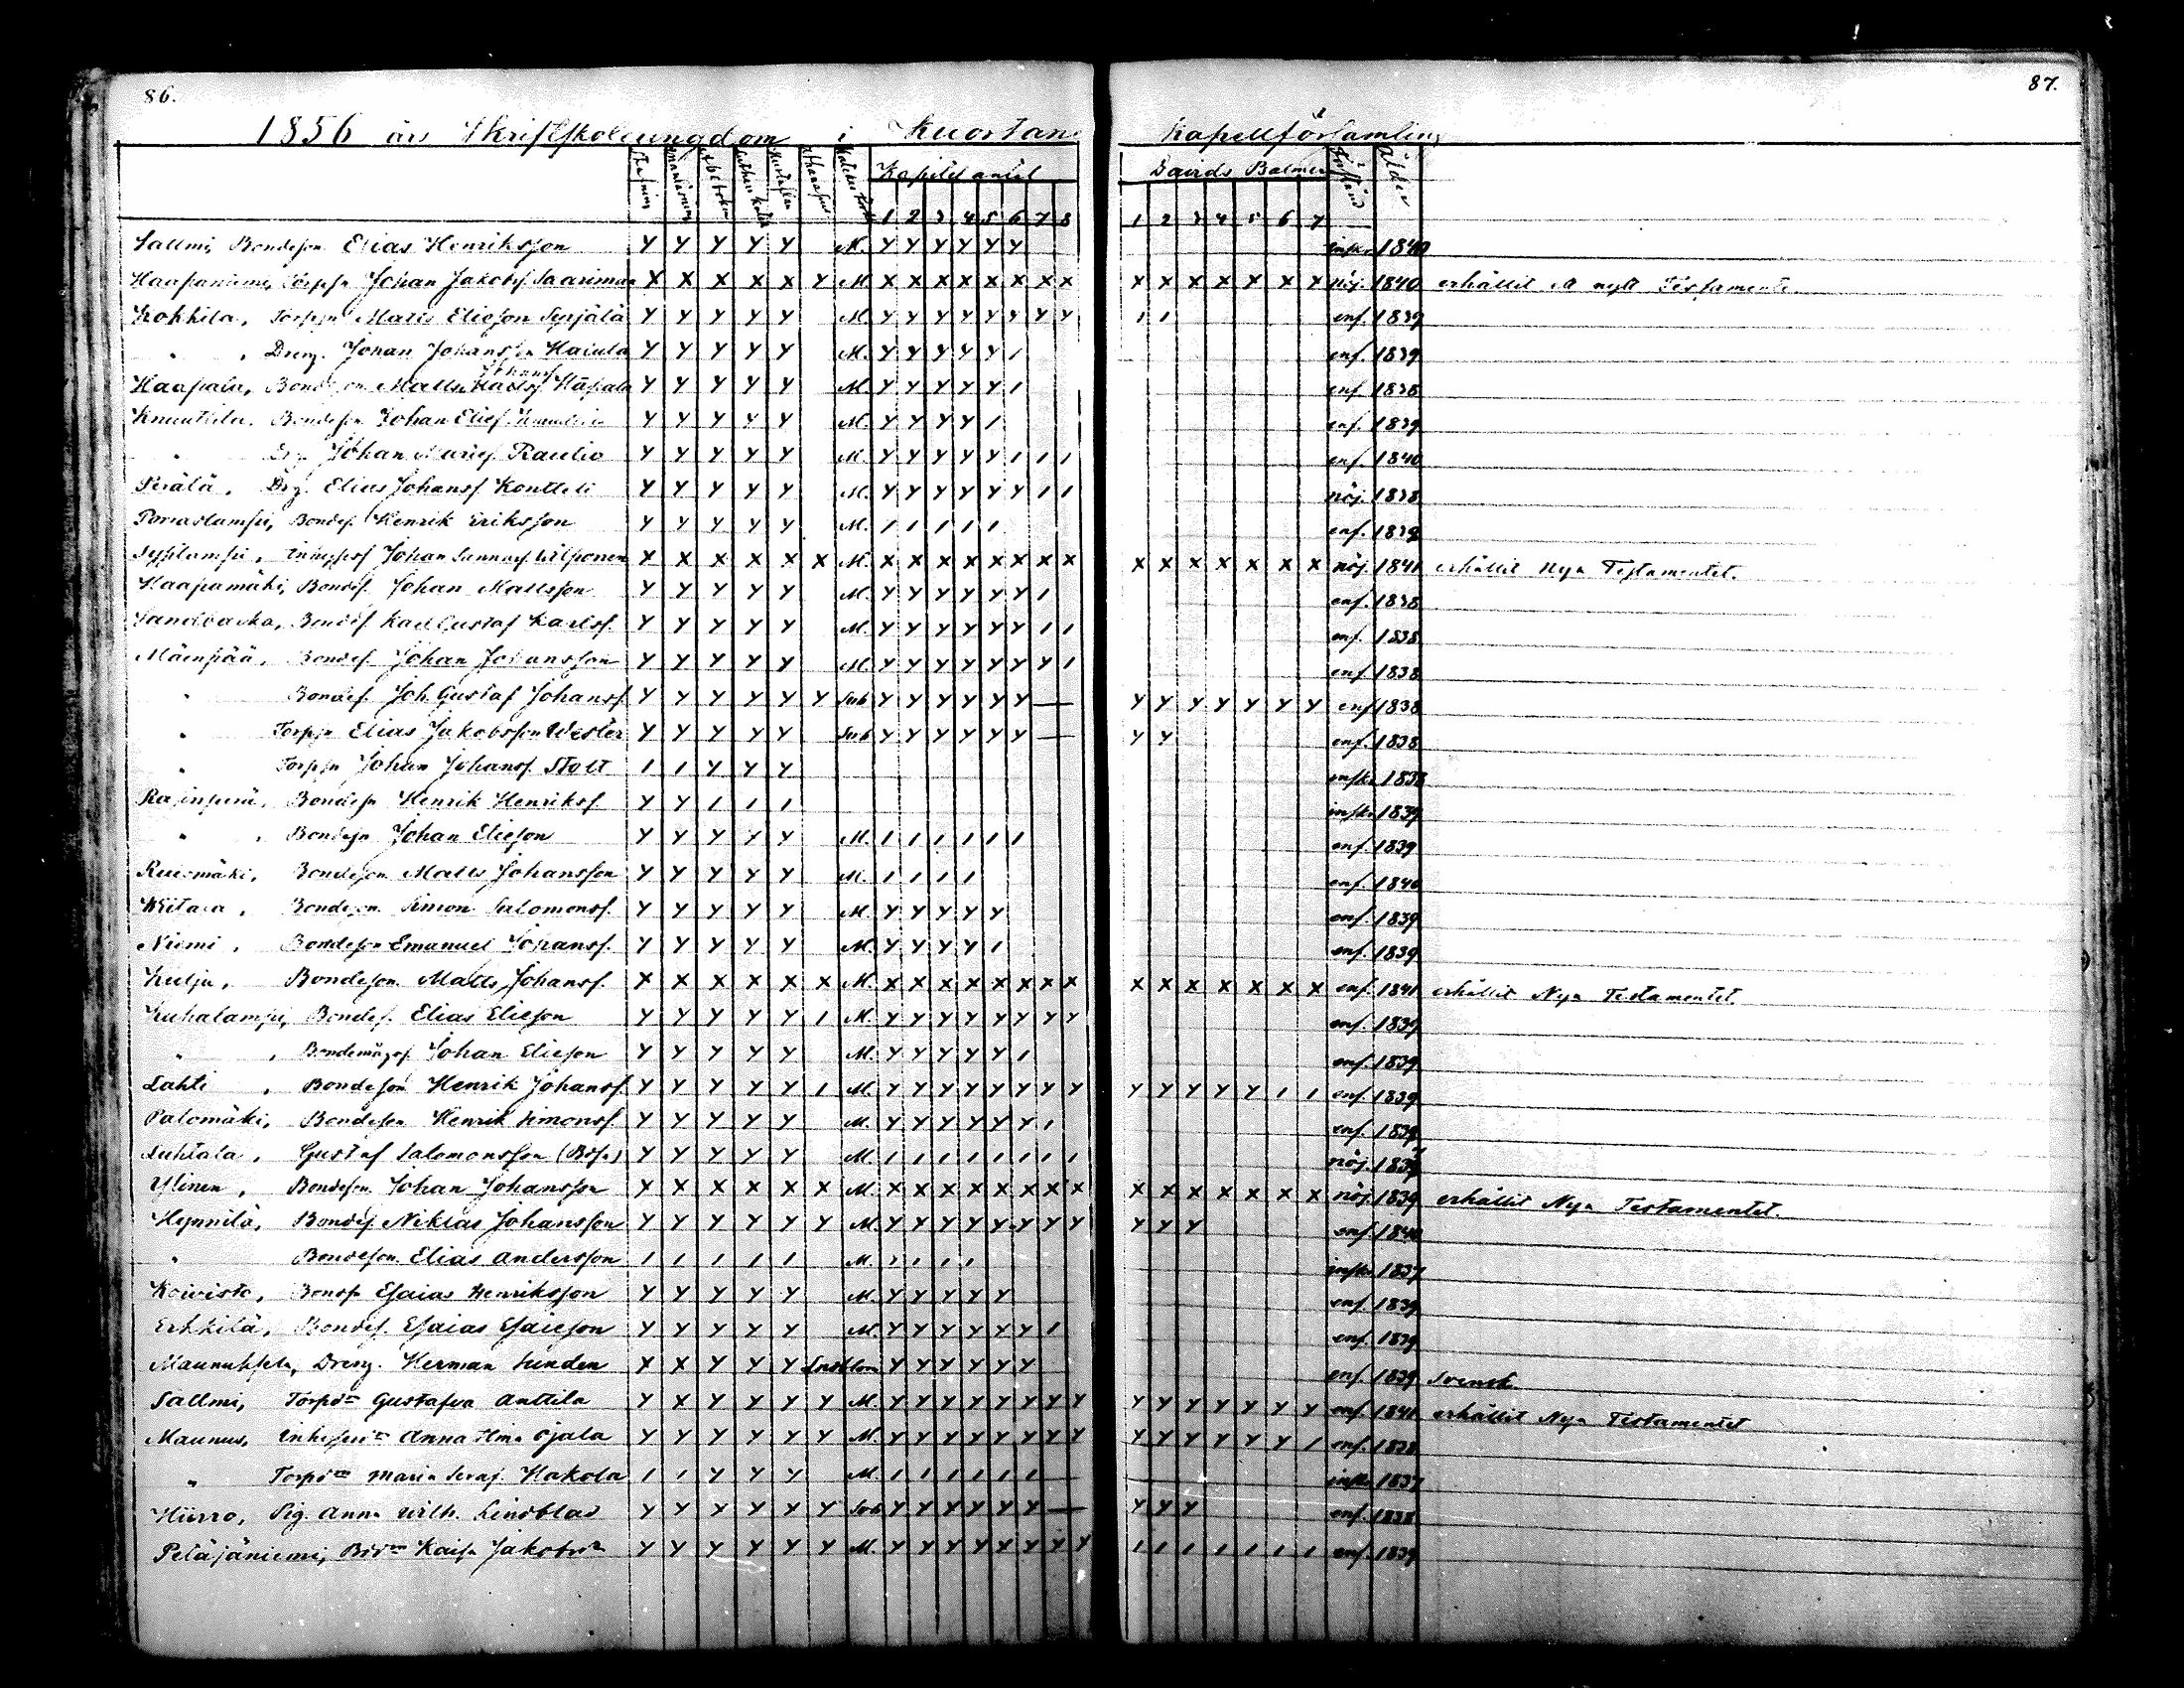 86.
87.
1856 års Skriftskoleungdom i Kuortane Kapellförsamling
Kapitel antal
Davids Psalmer
Förstånd Ålder
1 2 3 4 5 6 7 8 1 2 3 4 5 6 7
Sallmi, Bondeson Elias Henriksson Y Y Y Y Y M. Y Y Y Y Y Y insk. 1840
Haapaniemi, Torpson Johan Jakobsf. Saarimaa X X X X X Y M X X X X X X X X X X X X X X X nöj. 1840 erhållit ett nytt Testamente
Kokkila, Torpson Matts Eliesson Y Y Y Y Y M. Y Y Y Y Y Y Y Y 1 1 enf. 1839
" , Dreng. Johan Johansson Y Y Y Y Y M. Y Y Y Y Y 1 enf. 1839
Haapala, Bondeson Matts Johansf. Y Y Y Y Y M. Y Y Y Y Y 1 enf. 1838
Knuuttila, Bondeson Johan Elief. Y Y Y Y Y M. Y Y Y Y 1 enf. 1839
" Drg Johan Raulio Y Y Y Y Y M. Y Y Y Y Y 1 1 1 enf. 1840
Perälä, Drg. Elias Johansf. Kontteli Y Y Y Y Y M. Y Y Y Y Y Y 1 1 nöj. 1838
Porraslampi, Bondes. Henrik Eriksson Y Y Y Y Y M. 1 1 1 1 1 enf. 1839
Johan X X X X X X M. X X X X X X X X X X X X X X X nöj. 1841 erhållit Nya Testamentet.
Haapamäki, Bondes. Johan Mattsson Y Y Y Y Y M. Y Y Y Y Y Y 1 enf. 1838
Sandbacka, Bondes. Karl Gustaf Karlsf. Y Y Y Y Y M. Y Y Y Y Y Y 1 1 enf. 1838
Mäenpää, Bondes. Johan Johansson Y Y Y Y Y M. Y Y Y Y Y Y Y 1 enf 1838
" Bondes. Joh. Gustaf Johansf. Y Y Y Y Y Y Sub Y Y Y Y Y Y — Y Y Y Y Y Y Y enf 1838
" Torpson Elias Jakobsson Wester Y Y Y Y Y Sub Y Y Y Y Y Y — Y Y enf. 1838
" Torpson Johan Johansf. Stolt 1 1 Y Y Y insk. 1838
Bondeson Henrik Henriksf. Y Y 1 1 1 insk. 1839
" , Bondeson Johan Eliesson Y Y Y Y Y M. 1 1 1 1 1 1 enf. 1839
Ruismäki, Bondeson Matts Johansson Y Y Y Y Y M. 1 1 1 1 enf. 1840
Bondeson Simon Salomonsf. Y Y Y Y Y M. Y Y Y Y Y enf. 1839
Niemi, Bondeson Emanuel Johansf. Y Y Y Y Y M. Y Y Y Y 1 enf. 1839
Kulju, Bondeson Matts Johansf. X X X X X X M. X X X X X X X X X X X X X X X enf. 1841 erhållit Nya Testamentet.
Kuhalampi, Bondes. Elias Eliesson Y Y Y Y Y 1 M. Y Y Y Y Y Y Y Y enf. 1839
" , Bondemågsf. Johan Eliesson Y Y Y Y Y M. Y Y Y Y Y 1 enf. 1839
Lahti, Bondeson Henrik Johansf. Y Y Y Y Y 1 M. Y Y Y Y Y Y Y Y Y Y Y Y Y 1 1 enf. 1839
Palomäki, Bondeson Henrik Simonsf. Y Y Y Y Y M. Y Y Y Y Y Y 1 enf. 1839
Luhtala, Gustaf Salomonsson (Bdsn) Y Y Y Y Y M. 1 1 1 1 1 1 1 1 nöj.
Ylinen, Bondeson Johan Johansson X X X X X X M. X X X X X X X X X X X X X X X nöj. 1839 erhållit Nya Testamentet.
Hynnilä, Bondes. Niklas Johansson Y Y Y Y Y Y M. Y Y Y Y Y Y Y Y Y Y Y enf. 1840
" Bondeson Elias Andersson 1 1 1 1 1 M. 1 1 1 1 insk. 1837
Koivisto, Bonsn Esaias Henriksson Y Y Y Y Y M. Y Y Y Y Y enf. 1839
Erkkilä, Bondes. Esaias Esaiesson Y Y Y Y Y M. Y Y Y Y Y Y 1 enf. 1839
Maunuksela, Dreng. Herman Sunden X X Y Y Y Y Y Y Y Y Y enf. 1839 Svensk.
Sallmi, Torpdr Gustafva Anttila Y X Y Y Y Y M. Y Y Y Y Y Y Y Y Y Y Y Y Y Y Y enf. 1841 erhållit Nya Testamentet
Maunus, Inhysesdr Anna Ojala Y Y Y Y Y Y M. Y Y Y Y Y Y Y Y Y Y Y Y Y Y 1 enf. 1838
" Torpdr Maria Seraf. Hakola 1 1 Y Y Y M 1 1 1 1 1 1 — insk. 1837
Hiirro, Pig. Anna Wilh. Lindblad Y Y Y Y Y Y Sub Y Y Y Y Y Y — Y Y Y enf. 1838
Petäjäniemi, Bdr Kaisa Jakobsdr Y Y Y Y Y Y M. Y Y Y Y Y Y Y Y 1 1 1 1 1 1 1 enf. 1839